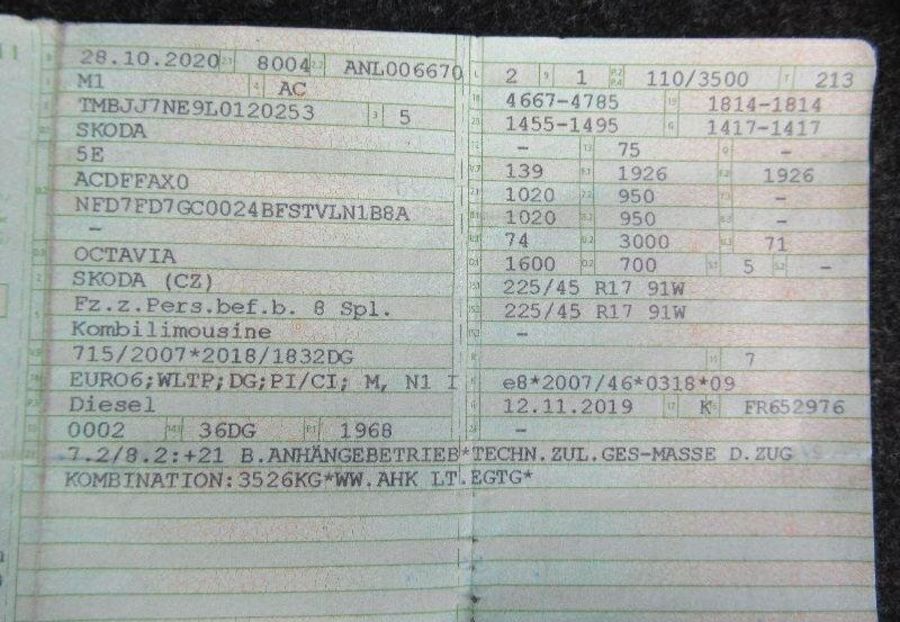 28.10.2020 8004 ANL006670
M1 AC
TMBJJ7NE9L0120253 5
SKODA
5E
ACDFFAX0
NFD7FD7GC0024BFSTVLN1B8A
-
OCTAVIA
SKODA (CZ)
Fz.z.Pers.bef.b. 8 Spl.
Kombilimousine
715/2007*2018/1832DG
EURO6;WLTP;DG;PI/CI; M, N1 I
Diesel
0002 36DG 1968
7.2/8.2:+21 B.ANHÄNGEBETRIEB*TECHN.ZUL.GES-MASSE D.ZUG
KOMBINATION:3526KG*WW.AHK LT.EGTG*
2 1 110/3500 213
4667-4785 1814-1814
1455-1495 1417-1417
- 75 -
139 1926 1926
1020 950 -
1020 950 -
74 3000 71
1600 700 5 -
225/45 R17 91W
225/45 R17 91W
-
7
e8*2007/46*0318*09
12.11.2019 K FR652976
-